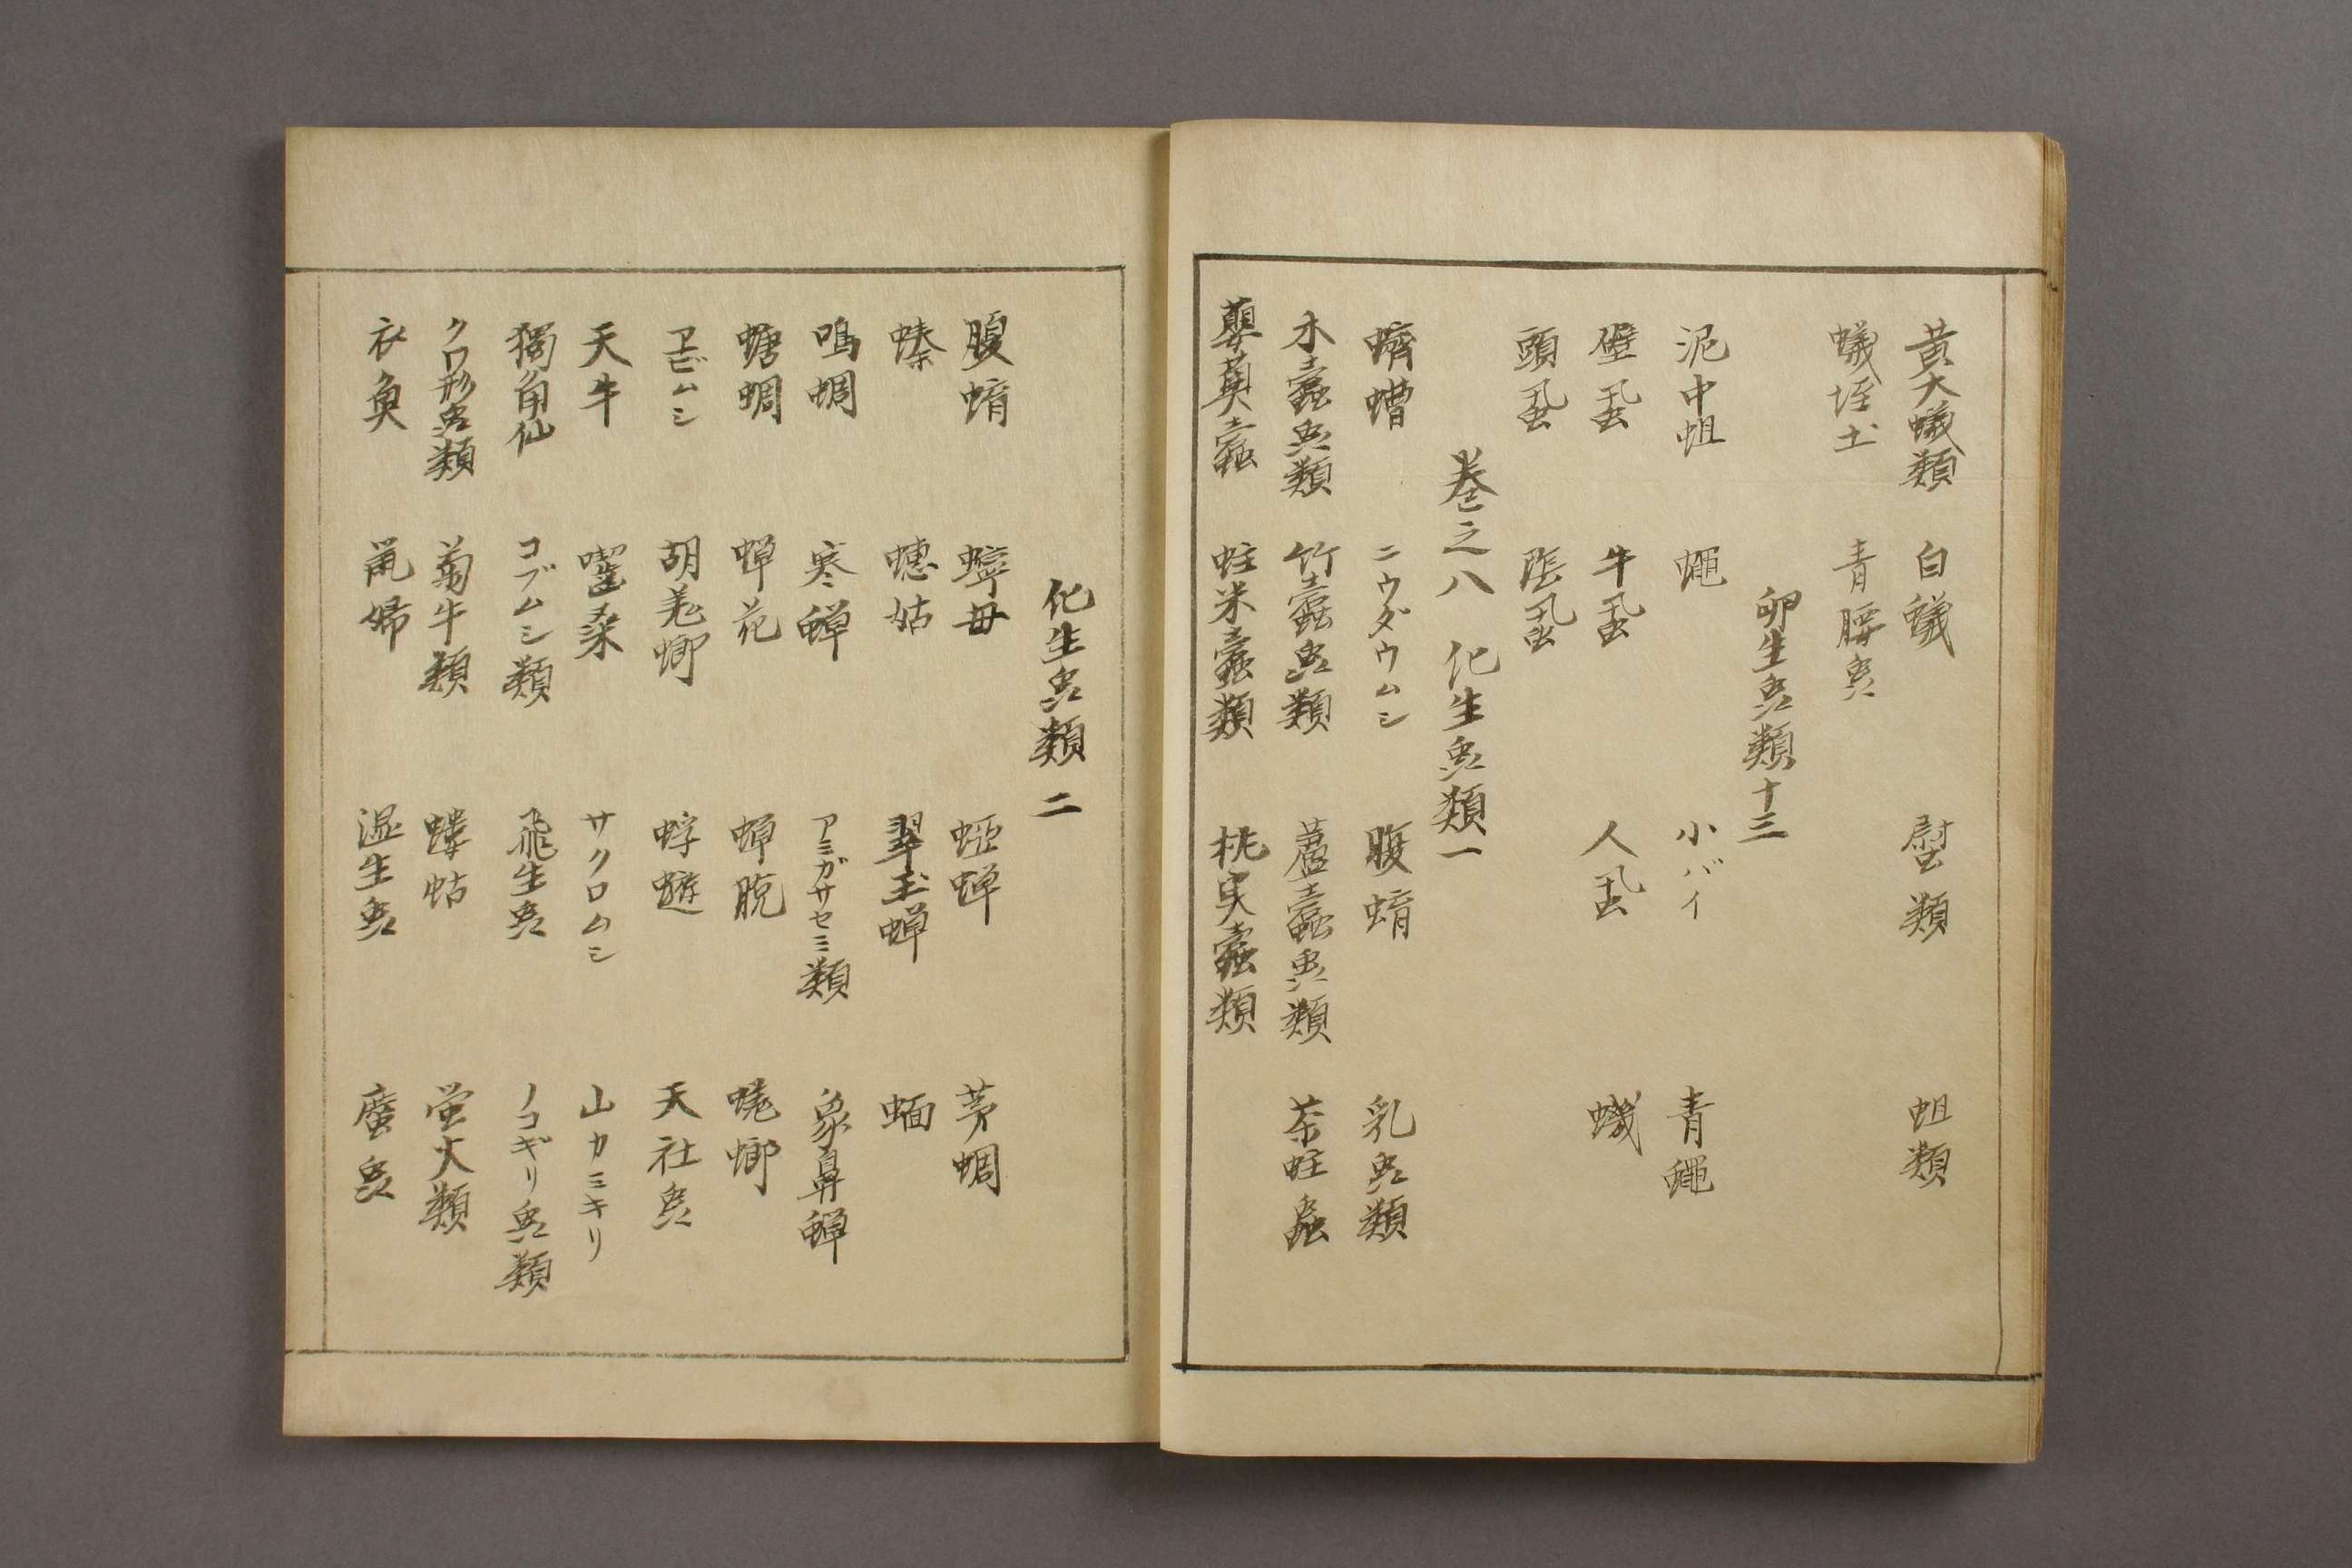 黄大蟻類 白蟻 螱類 蛆類
蟻垤土 青腰虫
卵生虫類十三
泥中蛆 蠅 小バイ 青蠅
壁蝨 牛蝨 人蝨 蟣
頭蝨 陰蝨
巻之八 化生虫類一
蠐螬 ニウダウムシ 腹蜟 乳虫類
木蠹虫類 竹蠹虫類 蘆蠹虫類 茶蛀蟲
蘡薁蠹 蛀米蠹類 桃実蠹類
化生虫類 二
腹蜟 蟪母 蝉 茅蜩
螓 蟪蛄 翠玉蝉 蝒
鳴蜩 寒蝉 アミガサセミ類 象鼻蝉
螗蜩 蝉花 蝉脱 蜣蜋
ヱビムシ 胡羌蜋 蜉蝣 天社虫
天牛 囓桑 サクロムシ 山カミキリ
獨角仙 コブムシ類 飛生虫 ノコギリ虫類
クワ形虫類 菊牛類 螻蛄 蛍火類
衣魚 鼠婦 湿生虫 䗪虫